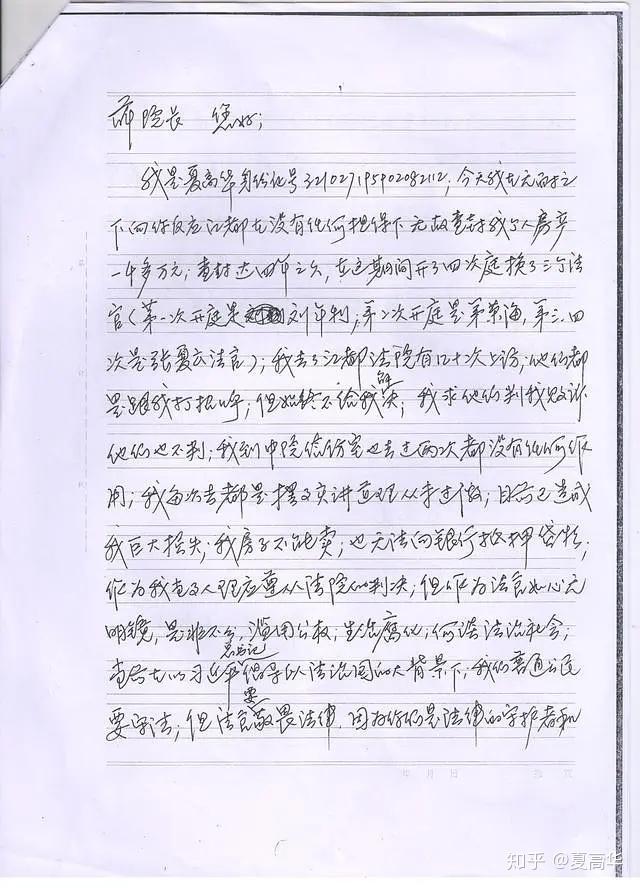 院长 您好;
我是夏高华身份证号321027195902082112;今天我在无奈之
下向你反应江都在没有任何担保下无故查封我个人房产
一千多万元;查封达四年之久,在这期间开了四次庭换了三个法
官(第一次开庭是刘年利;第2次开庭是 第三.四
次是张夏云法官);我去了江都法院有几十次上访;他们都
是跟我打招呼;但始终不给我解决;我求他们判我败诉
他们也不判;我到中院信访室也去过两次都没有任何作
用;我每次去都是摆事实讲道理从未过激;目前已造成
我巨大损失;我房子不能卖;也无法向银行抵押贷款;
作为我当事人理应尊从法院的判决;但作为法官如心无
明镜,是非不分,滥用公权;生活腐化;何谈法治社会;
当前在以习近平总书记倡导以法治国的大背景下;我们普通公民
要守法;但法官要敬畏法律.因为你们是法律的守护者和
年 月 日
知乎 @夏高华